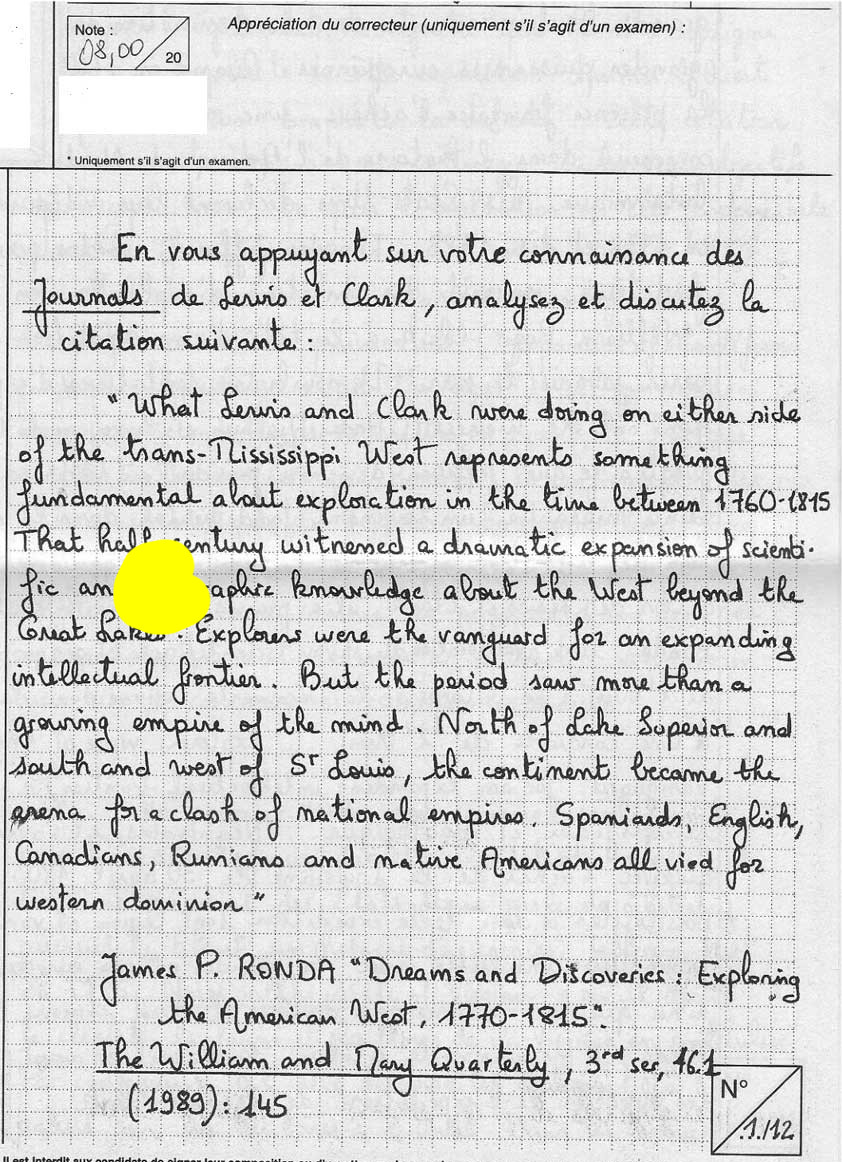 Note :
08,00
20
Appréciation du correcteur (uniquement s'il s'agit d'un examen) :
* Uniquement s'il s'agit d'un examen.
En vous appuyant sur votre connaissance des
Journals de Lewis et Clark, analysez et discutez la
citation suivante :
"What Lewis and Clark were doing on either side
of the trans-Mississippi West represents something
fundamental about exploration in the time between 1760-1815
That half century witnessed a dramatic expansion of scienti-
fic knowledge about the West beyond the
Great Lakes. Explorers were the vanguard for an expanding
intellectual frontier. But the period saw more than a
growing empire of the mind. North of Lake Superior and
south and west of St Louis, the continent became the
arena for a clash of national empires. Spaniards, English,
Canadians, Russians and native Americans all vied for
western dominion"
James P. RONDA "Dreams and Discoveries : Exploring
the American West, 1770-1815".
The William and Mary Quarterly, 3rd ser, 46.1
(1989) : 145
N°
1/12